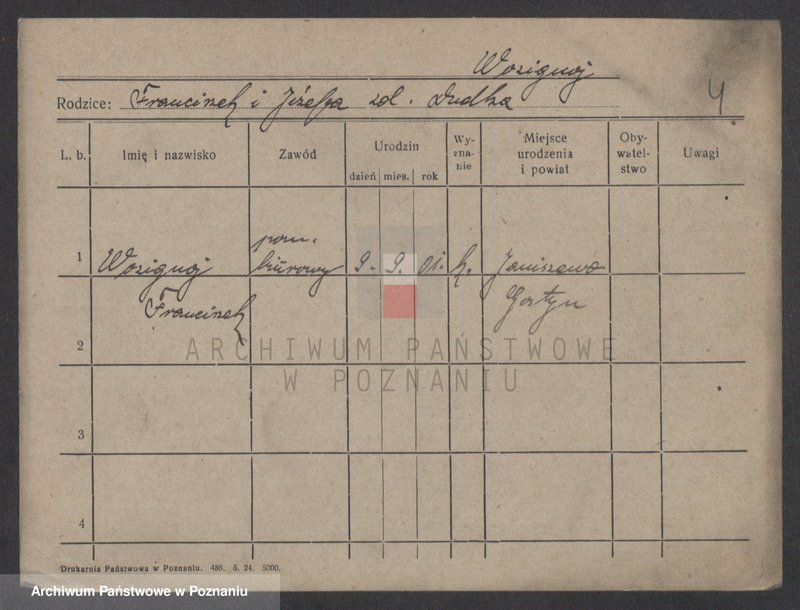 Wosignoj
Rodzice: Franciszek i Józefa zd. Dudka
4
L. b. Imię i nazwisko Zawód Urodzin dzień mies. rok Wy-zna-nie Miejsce urodzenia i powiat Oby-watel-stwo Uwagi
pom.
1 Wosignoj biurowy 9. 9. 01. k. Janiszewo
Franciszek Gostyń
2
ARCHIWUM PAŃSTWOWE
W POZNANIU
3
4
Drukarnia Państwowa w Poznaniu. 486. 5. 24. 5000.
Archiwum Państwowe w Poznaniu